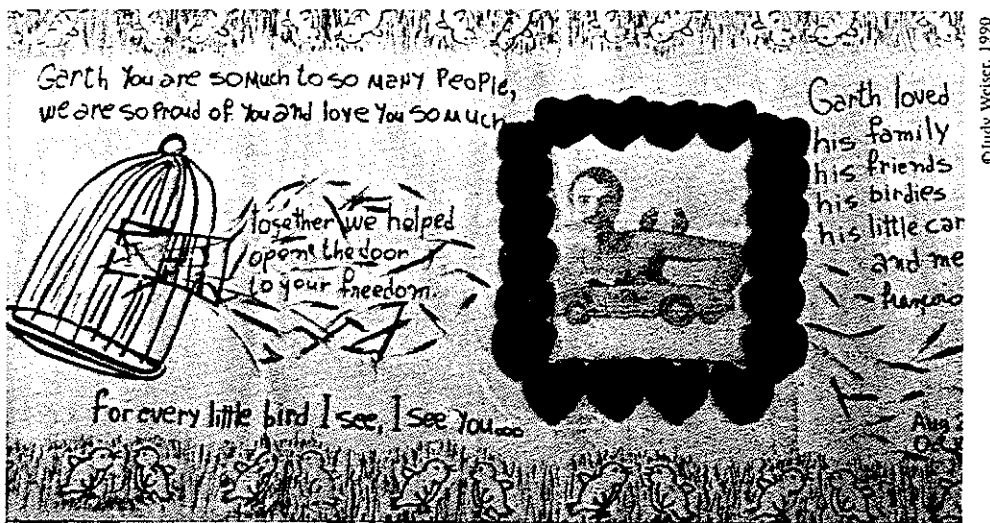 Garth You are so Much to so Many People,
we are so Proud of You and love You so much
together we helped
opent the door
to your freedom.
for every little bird I see, I see You...
Garth loved
his family
his friends
his birdies
his little car
and me
Aug
© Judy Weiser, 1990